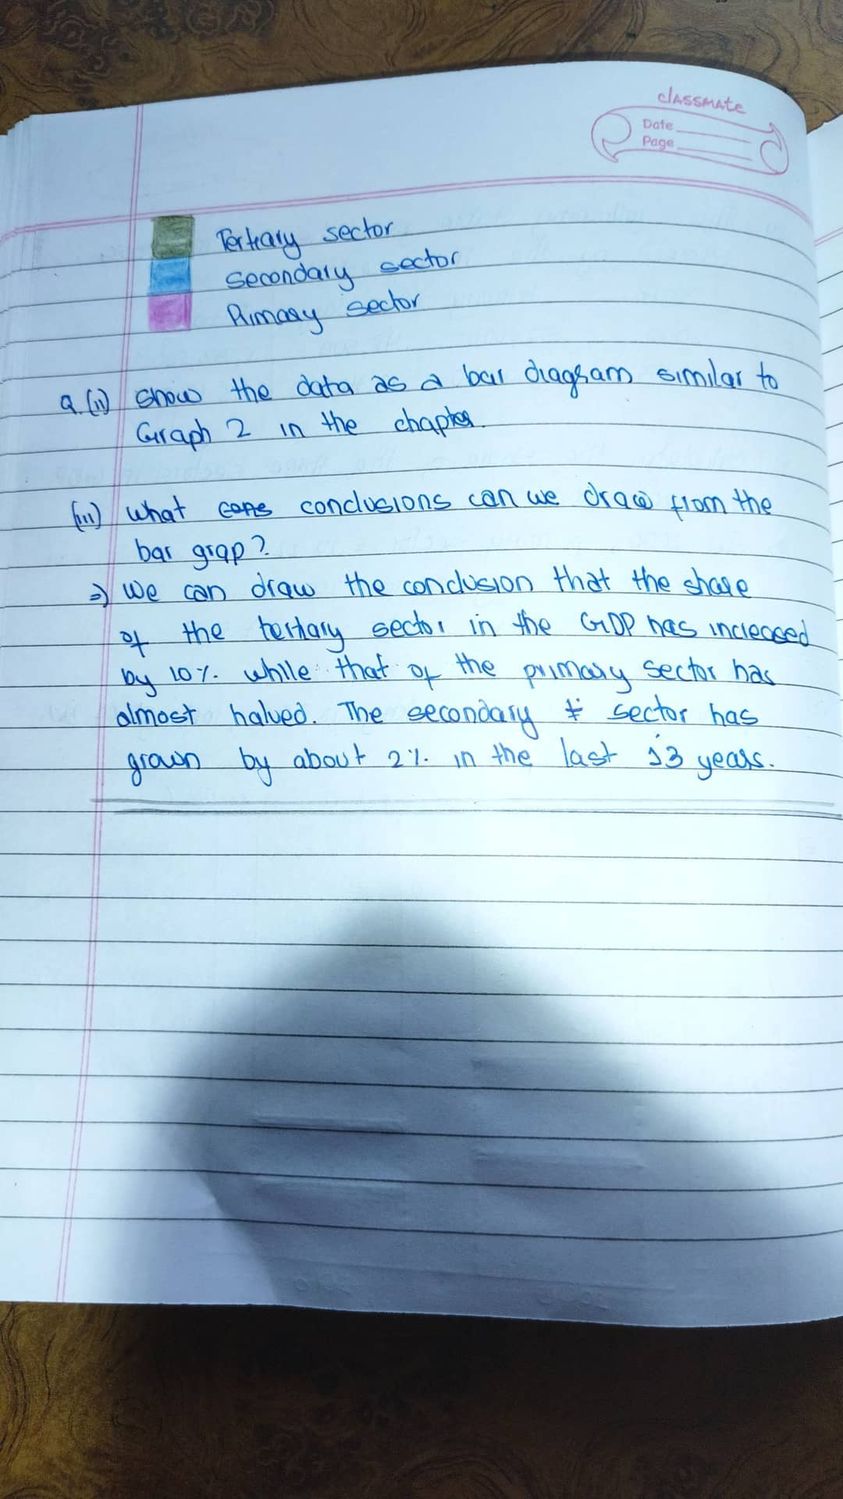 classmate
Date
Page
Tertiary sector
Secondary sector
Primary sector
Q.(ii) Show the data as a bar diagram similar to
Graph 2 in the chapter.
(iii) What cons conclusions can we draw from the
bar grap?
⇒ We can draw the conclusion that the share
of the tertiary sector in the GDP has increased
by 10% while that of the primary sector has
almost halved. The secondary sector has
grown by about 2% in the last 13 years.